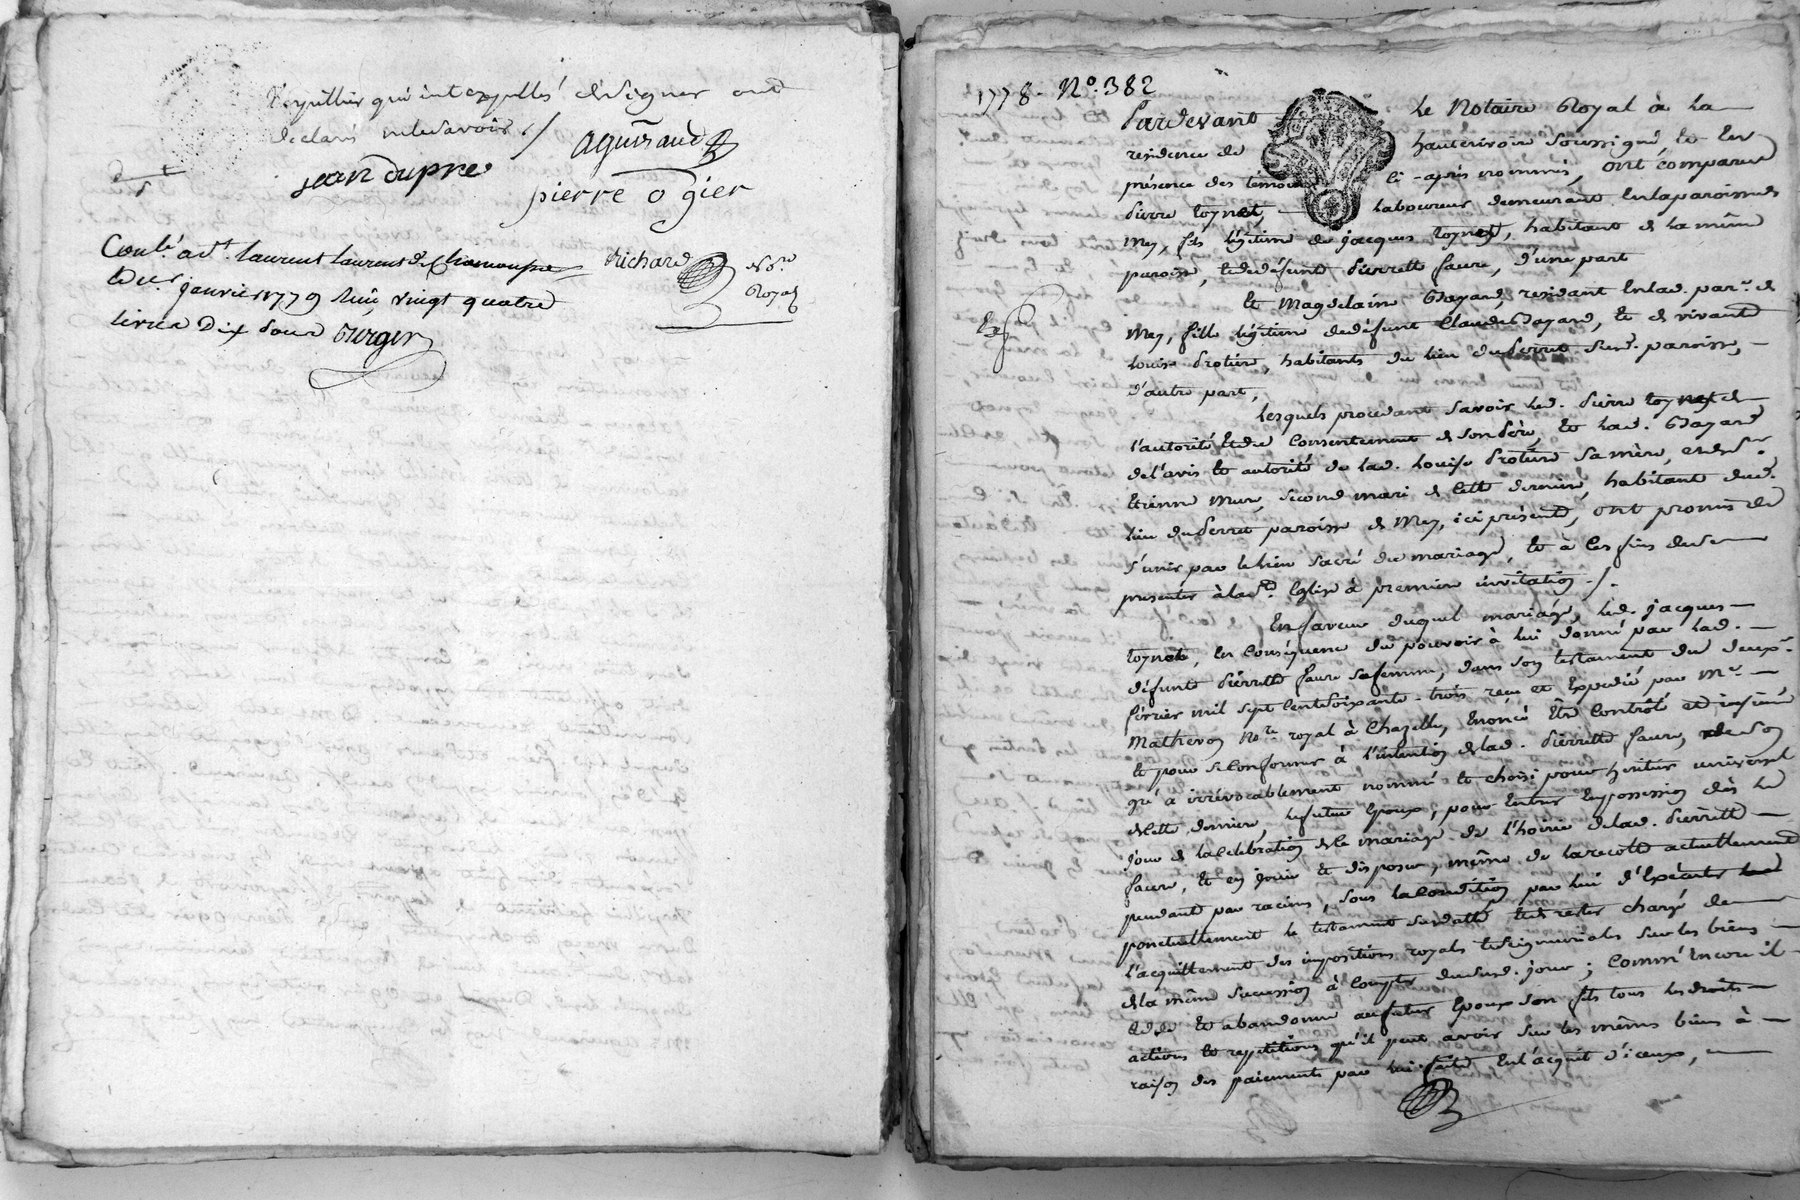 qui interpellés de signer ont
declaré ne le savoir ./
aguiraud
jean dupre
pierre ogier
Conle. a St. laurent laurent de Chamousset
richard
no.re
Royal
le janvier 1779 Reçu vingt quatre
livres Dix sous Berger
1778. No. 382
Pardevant le Notaire Royal à la
residence de hauterivoire soussigné, et en
présence des témoins ci-après nommés, ont comparu
pierre toynet, laboureur demeurant en la paroisse de
Mey, fils légitime de jacques toynet, habitant de la même
paroisse, et de défunte pierrette faure, d'une part
Et Magdelaine Bayard, residant en lad. par. de
Mey, fille légitime de défunt Claude Bayard, et de vivante
louise protière, habitants du lieu du perret sud. paroisse,
d'autre part,
lesquels procedant savoir led. pierre toynet de
l'autorité et du consentement de son père, et lad. Bayard
de l'avis et autorité de lad. louise protière sa mère, et de sr.
Etienne Mure, second mari de cette derniere, habitant dud.
lieu du perret paroisse de Mey, ici présents, ont promis de
s'unir par le lien sacré du mariage, et à ces fins de se
presenter à lad. Eglise à premiere invitation ./.
En faveur duquel mariage, led. jacques
toynet, en conséquence du pouvoir à lui donné par lad.
défunte pierrette faure sa femme, dans son testament du deux
février mil sept cent soixante-trois reçu et Expédié par Me.
Matheron Nore. royal à Chazelle, énoncé être contrôlé et insinué
et pour se conformer à l'intention de lad. pierrette faure, de son
gré a irrévocablement nommé et choisi pour héritier universel
de cette derniere, le futur époux, pour entrer en possession dès le
jour de la célébration de ce mariage de l'hoirie de lad. pierrette
faure, et en jouir et disposer, même de la recolte actuellement
pendante par racines, sous la condition par lui d'Exécuter
ponctuellement le testament susdatté et de rester chargé de
l'acquittement des impositions royales et seigneuriales sur les biens
de la même succession à compter dudit jour; comm'encore il
cede et abandonne au futur époux son fils tous les droits
actions et repetitions qu'il peut avoir sur les mêmes biens à
raison des paiements par lui faits en l'acquit d'iceux,